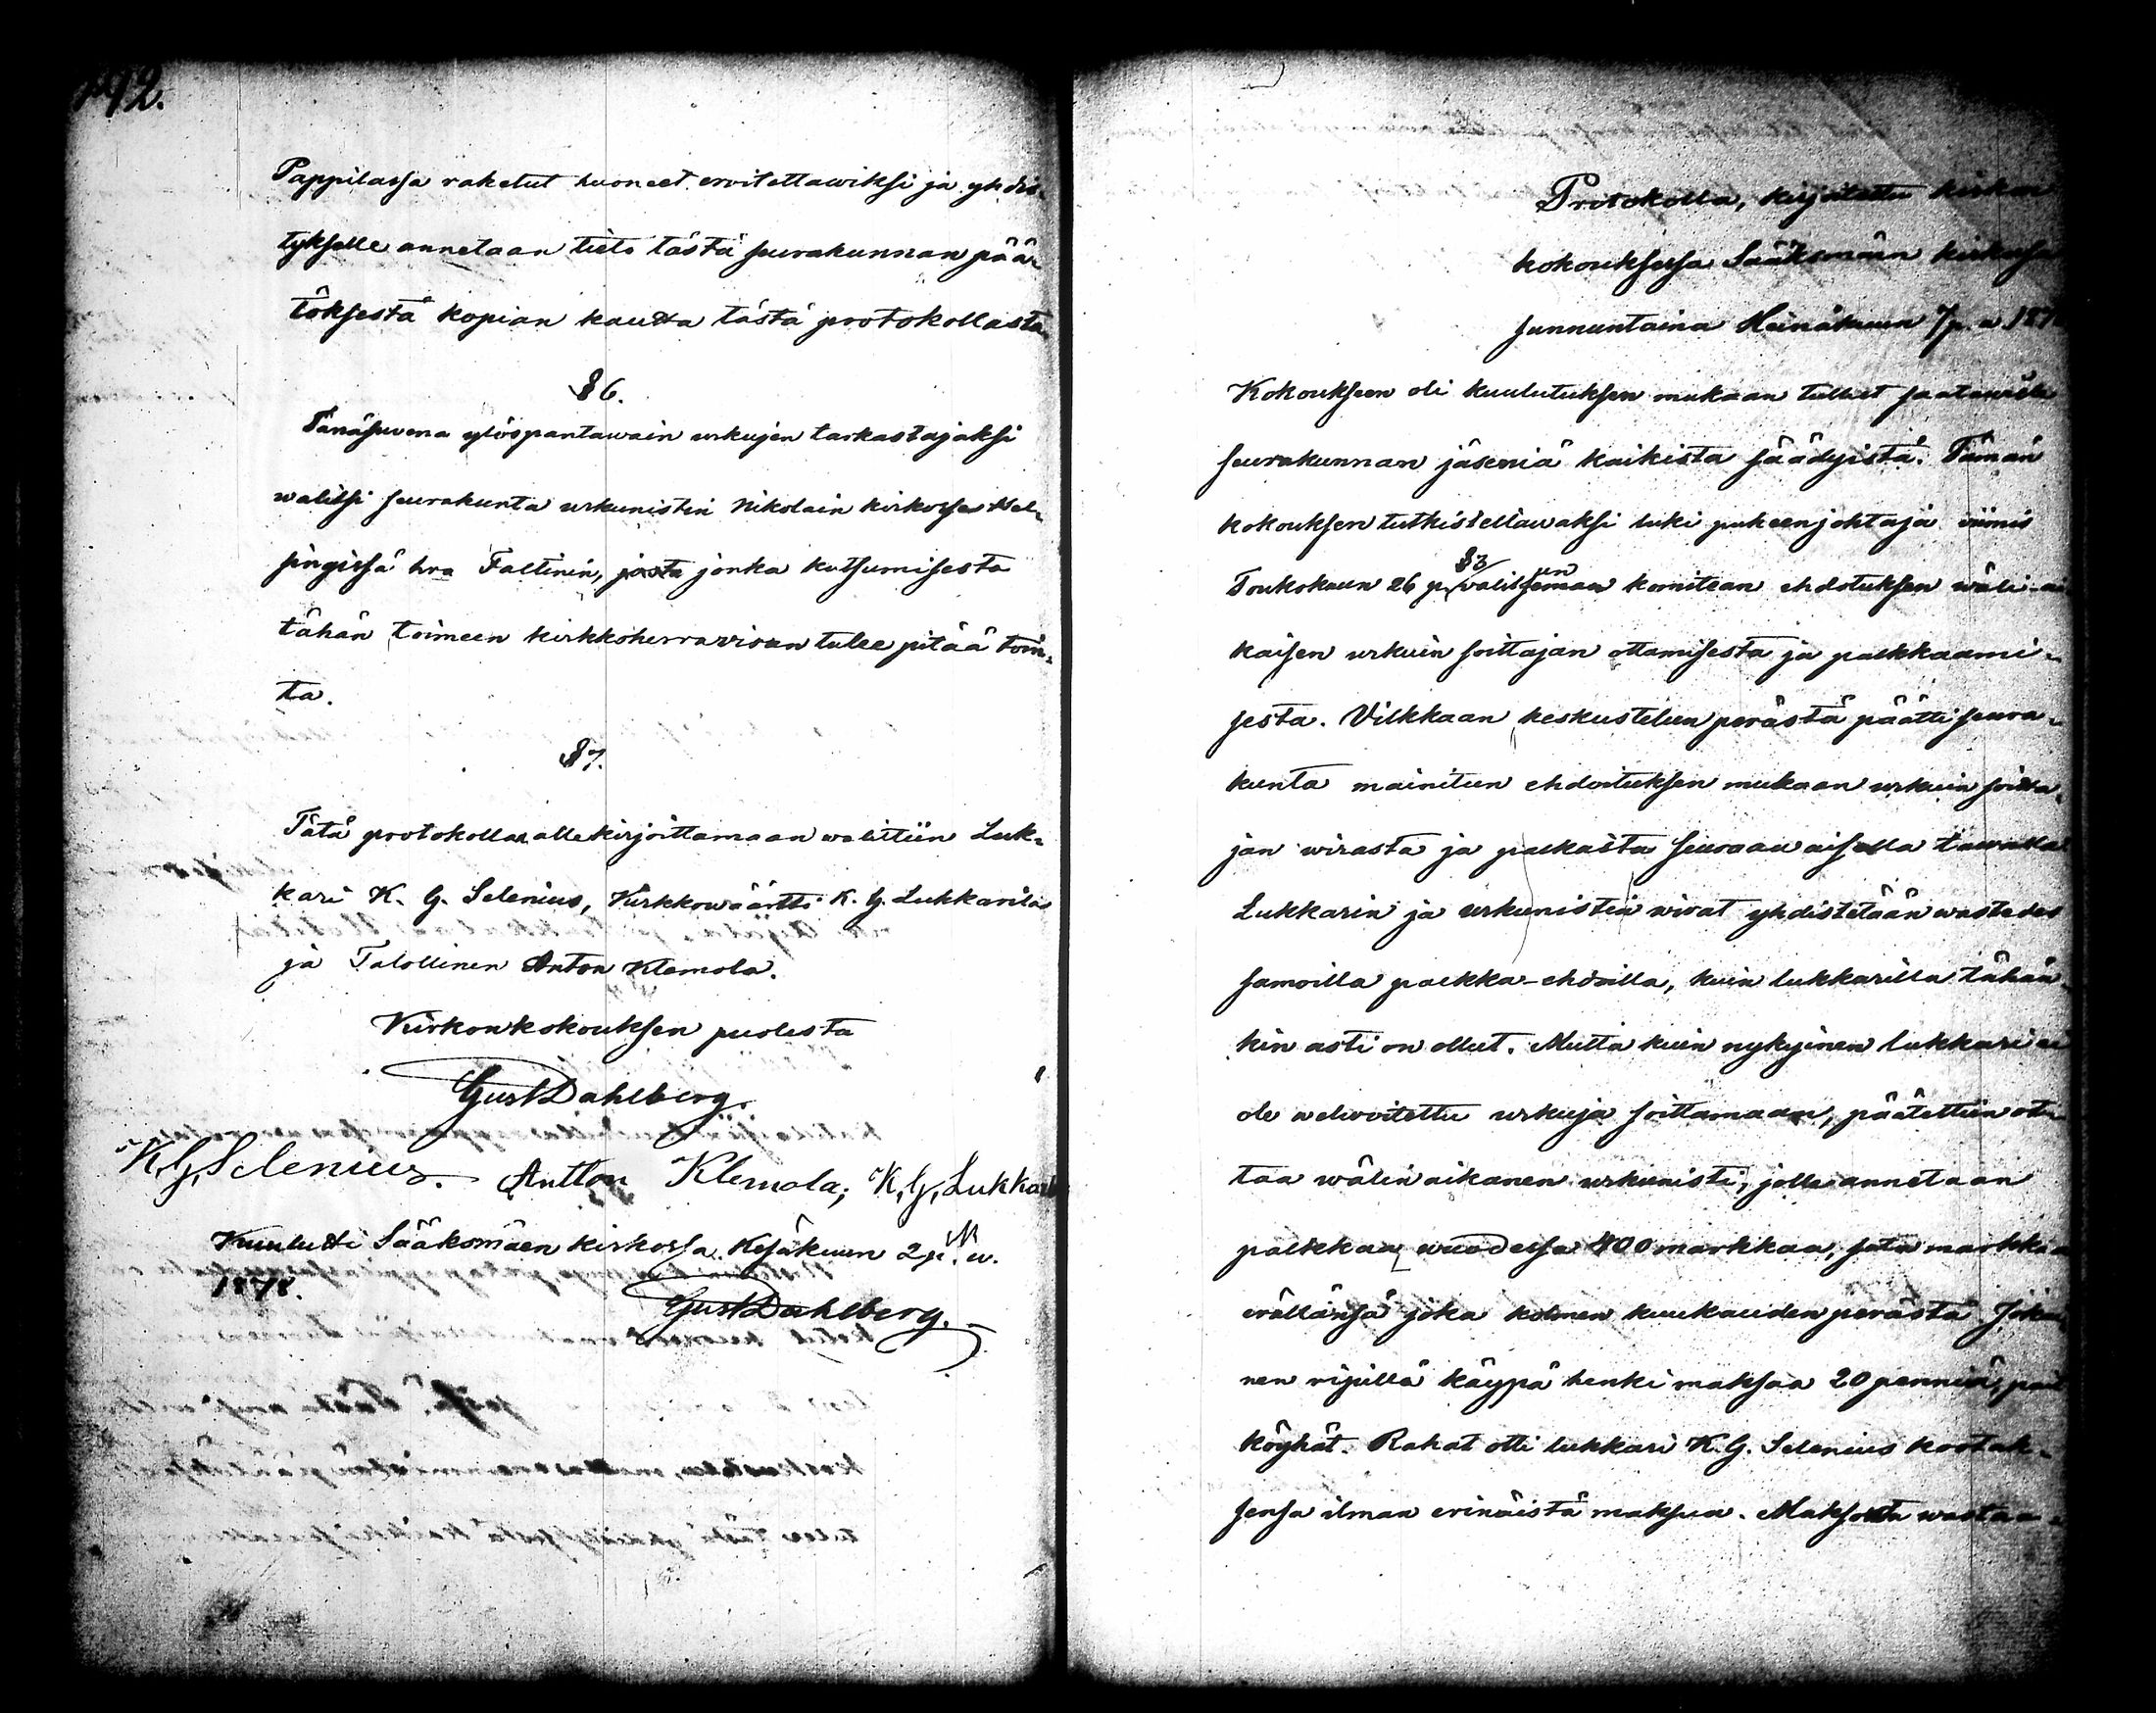 192.
Pappilassa raketut huoneet eroitettawiksi ja yhdis-
tykselle annetaan tieto tästä seurakunnan pää-
töksestä kopian kautta tästä protokollasta
§ 6.
Tänäsuvena ylöspantawain urkujen tarkastajaksi
walitsi seurakunta urkunistin Nikolain kirkossa Hel-
singissä hra Faltinin, josta jonka kutsumisesta
tähän toimeen kirkkoherranviran tulee pitää toin-
ta.
§ 7.
Tätä protokollaa allekirjoittamaan walittiin Luk-
kari K. G. Selenius, Kirkkowäärtti K. G. Lukkarila
ja Talollinen Anton Klemola.
Kirkonkokouksen puolesta
Gust Dahlberg.
K, G, Selenius. Antton Klemola; K, G, Lukkari
Kuulutti Sääksmäen kirkossa Kesäkuun 2 p. w.
1878.
Gust Dahlberg.
Protokolla, kirjoitettu kirkon
kokouksessa Sääksmäen kirkossa
sunnuntaina Heinäkuun 7 p. w. 187
Kokoukseen oli kuulutuksen mukaan tullut saatawilla
seurakunnan jäseniä kaikista säädyistä. Tämän
kokouksen tutkisteltawaksi luki puheenjohtaja viimis
§ 3 un
Toukokuun 26 p. valitseman komitean ehdotuksen wäli-ai
kaisen urkuin soittajan ottamisesta ja palkkaami-
sesta. Vilkkaan keskustelun perästä päätti seura-
kunta mainitun ehdoituksen mukaan urkuin soitta-
jan wirasta ja palkasta seuraawaisella tawalla
Lukkarin ja urkunistin wirat yhdistetään wastedes
samoilla palkka-ehdoilla, kuin lukkarilla tähän-
kin asti on ollut. Mutta kuin nykyinen lukkari ei
ole welwoitettu urkuja soittamaan, päätettiin ot-
taa wälinaikanen urkunisti, jolle annetaan
palkkaa wuodessa 400 markkaa, sata markkaa
erällänsä joka kolmen kuukauden perästä. Joka
nen ripillä käypä henki maksaa 20 penniä, pait
köyhät. Rahat otti lukkari K. G. Selenius kootak-
sensa ilman erinäistä maksua. Maksosta wastaa-